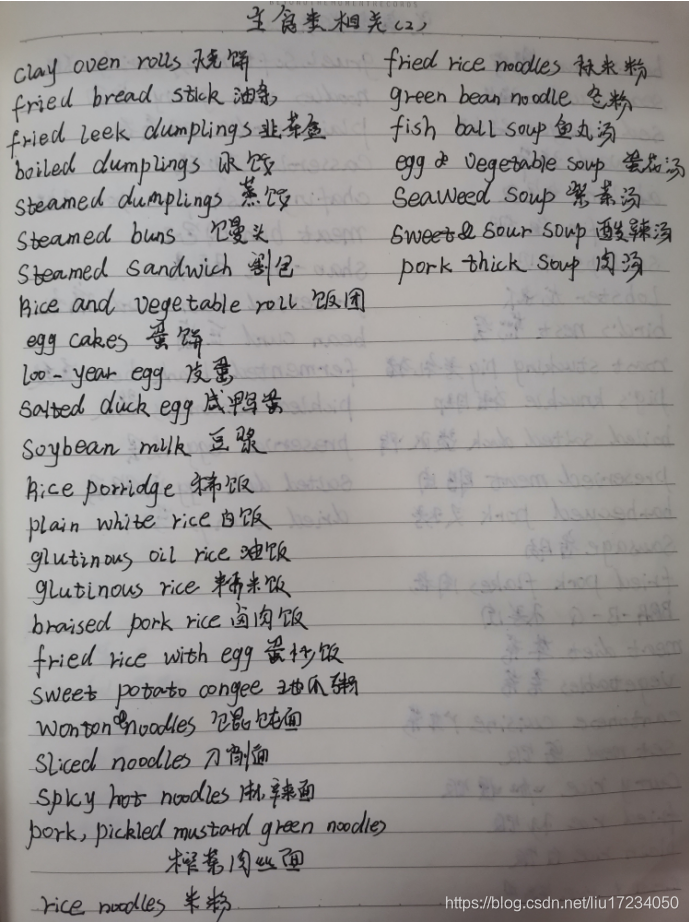 主食类相关(2)
clay oven rolls 烧饼
fried bread stick 油条
fried leek dumplings 韭菜盒
boiled dumplings 水饺
steamed dumplings 蒸饺
steamed buns 馒头
steamed sandwich 割包
Rice and vegetable roll 饭团
egg cakes 蛋饼
100-year egg 皮蛋
salted duck egg 咸鸭蛋
soybean milk 豆浆
Rice porridge 稀饭
plain white rice 白饭
glutinous oil rice 油饭
glutinous rice 糯米饭
braised pork rice 卤肉饭
fried rice with egg 蛋炒饭
sweet potato congee 地瓜粥
wonton & noodles 馄饨面
sliced noodles 刀削面
spicy hot noodles 麻辣面
pork, pickled mustard green noodles
榨菜肉丝面
rice noodles 米粉
fried rice noodles 炒米粉
green bean noodle 冬粉
fish ball soup 鱼丸汤
egg & vegetable soup 蛋花汤
seaweed soup 紫菜汤
sweet & sour soup 酸辣汤
pork thick soup 肉汤
https://blog.csdn.net/liu17234050